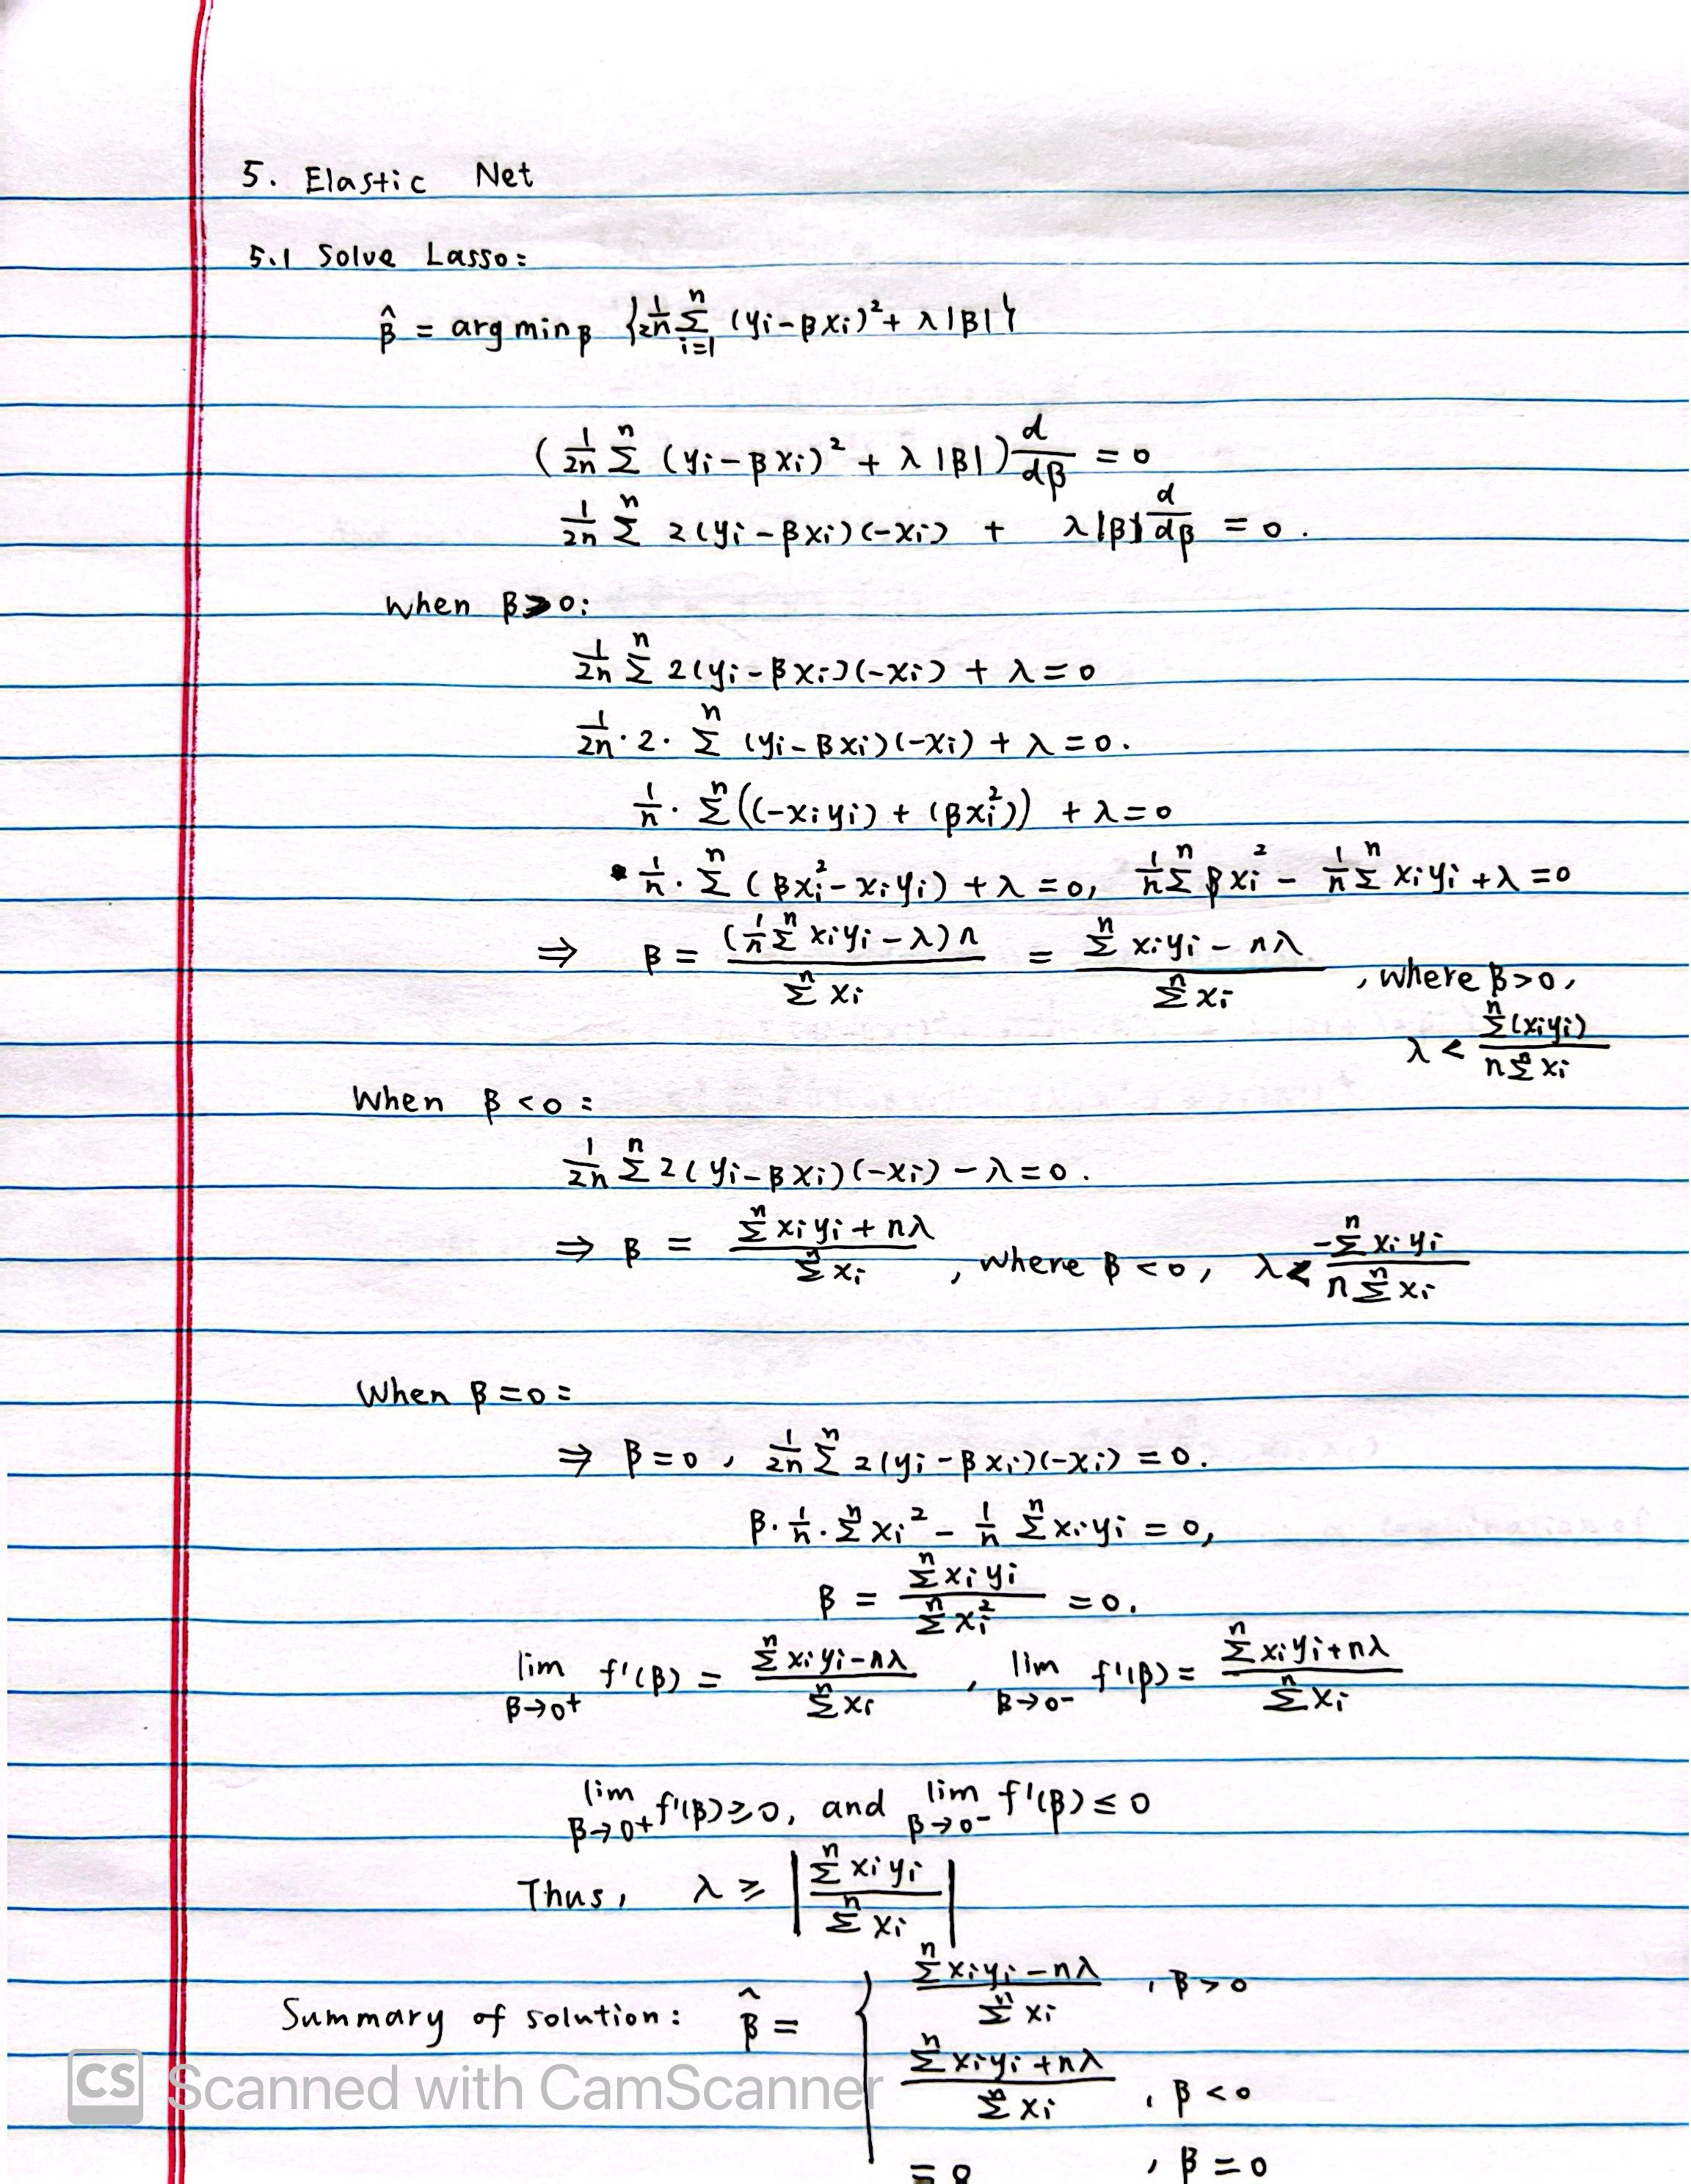 5. Elastic Net
5.1 Solve Lasso:
β̂ = arg min_β { 1/2n Σ_{i=1}^n (yi - βxi)² + λ|β| }
( 1/2n Σ^n (yi - βxi)² + λ|β| ) d/dβ = 0
1/2n Σ^n 2(yi - βxi)(-xi) + λ|β| d/dβ = 0.
When β>0:
1/2n Σ^n 2(yi - βxi)(-xi) + λ = 0
1/2n · 2 · Σ^n (yi - βxi)(-xi) + λ = 0.
1/n · Σ^n ((-xiyi) + (βxi²)) + λ = 0
1/n · Σ^n (βxi² - xiyi) + λ = 0, 1/n Σ^n βxi² - 1/n Σ^n xiyi + λ = 0
⇒ β = (1/n Σ^n xiyi - λ)n / Σ^n xi = (Σ^n xiyi - nλ) / Σ^n xi , where β>0,
λ < Σ^n(xiyi) / nΣ^n xi
When β<0:
1/2n Σ^n 2(yi - βxi)(-xi) - λ = 0.
⇒ β = (Σ^n xiyi + nλ) / Σ^n xi , where β<0, λ < -Σ^n xiyi / nΣ^n xi
When β=0:
⇒ β=0, 1/2n Σ^n 2(yi - βxi)(-xi) = 0.
β · 1/n · Σ^n xi² - 1/n Σ^n xiyi = 0,
β = Σ^n xiyi / Σ^n xi² = 0.
lim_{β→0+} f'(β) = (Σ^n xiyi - nλ) / Σ^n xi , lim_{β→0-} f'(β) = (Σ^n xiyi + nλ) / Σ^n xi
lim_{β→0+} f'(β) ≥ 0, and lim_{β→0-} f'(β) ≤ 0
Thus, λ ≥ | Σ^n xiyi / Σ^n xi |
Summary of solution: β̂ = { (Σ^n xiyi - nλ) / Σ^n xi , β>0
(Σ^n xiyi + nλ) / Σ^n xi , β<0
= 0 , β=0
CS Scanned with CamScanner